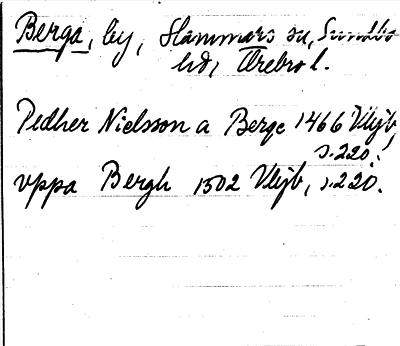 Berga, by, Hammars sn, Sundbo
hd, Örebro l.
Pedher Nielsson a Berge 1466 Vlijb,
s. 220.
vppa Bergh 1502 Vlijb, s. 220.